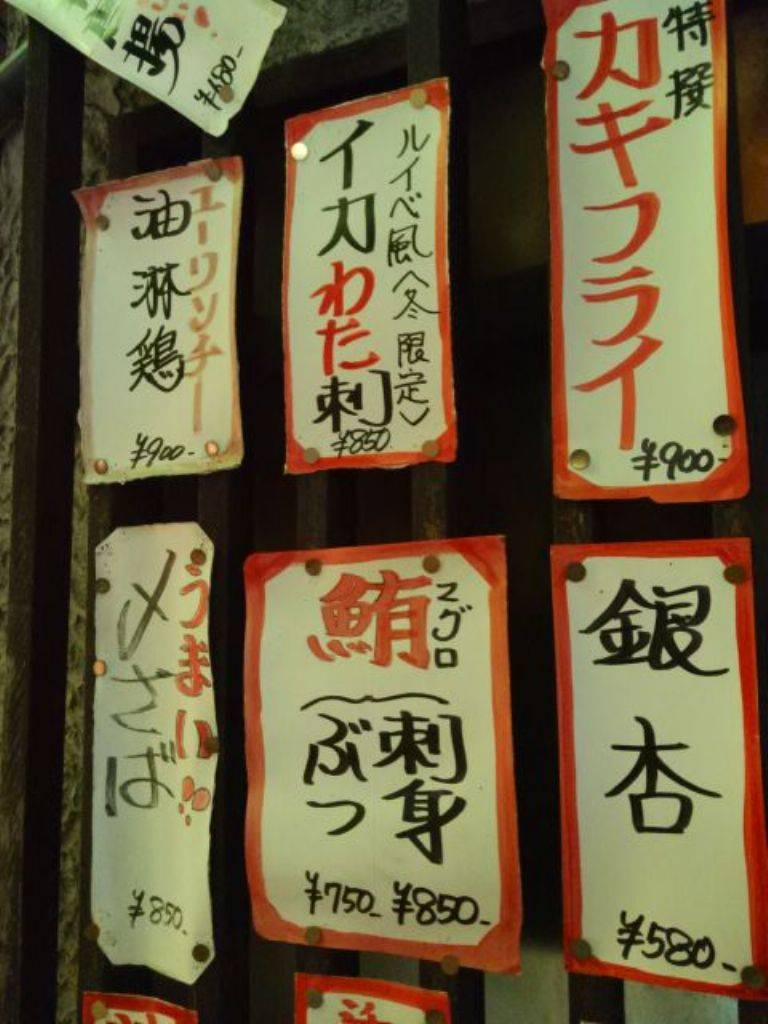 揚
¥480-
特撰
カキフライ
¥900-
ルイベ風〈冬限定〉
イカわた刺
¥850
ユーリンチー
油淋鶏
¥900-
銀杏
¥580-
マグロ
鮪
刺身
¥850-
ぶつ
¥750-
うまい!!
〆さば
¥850-